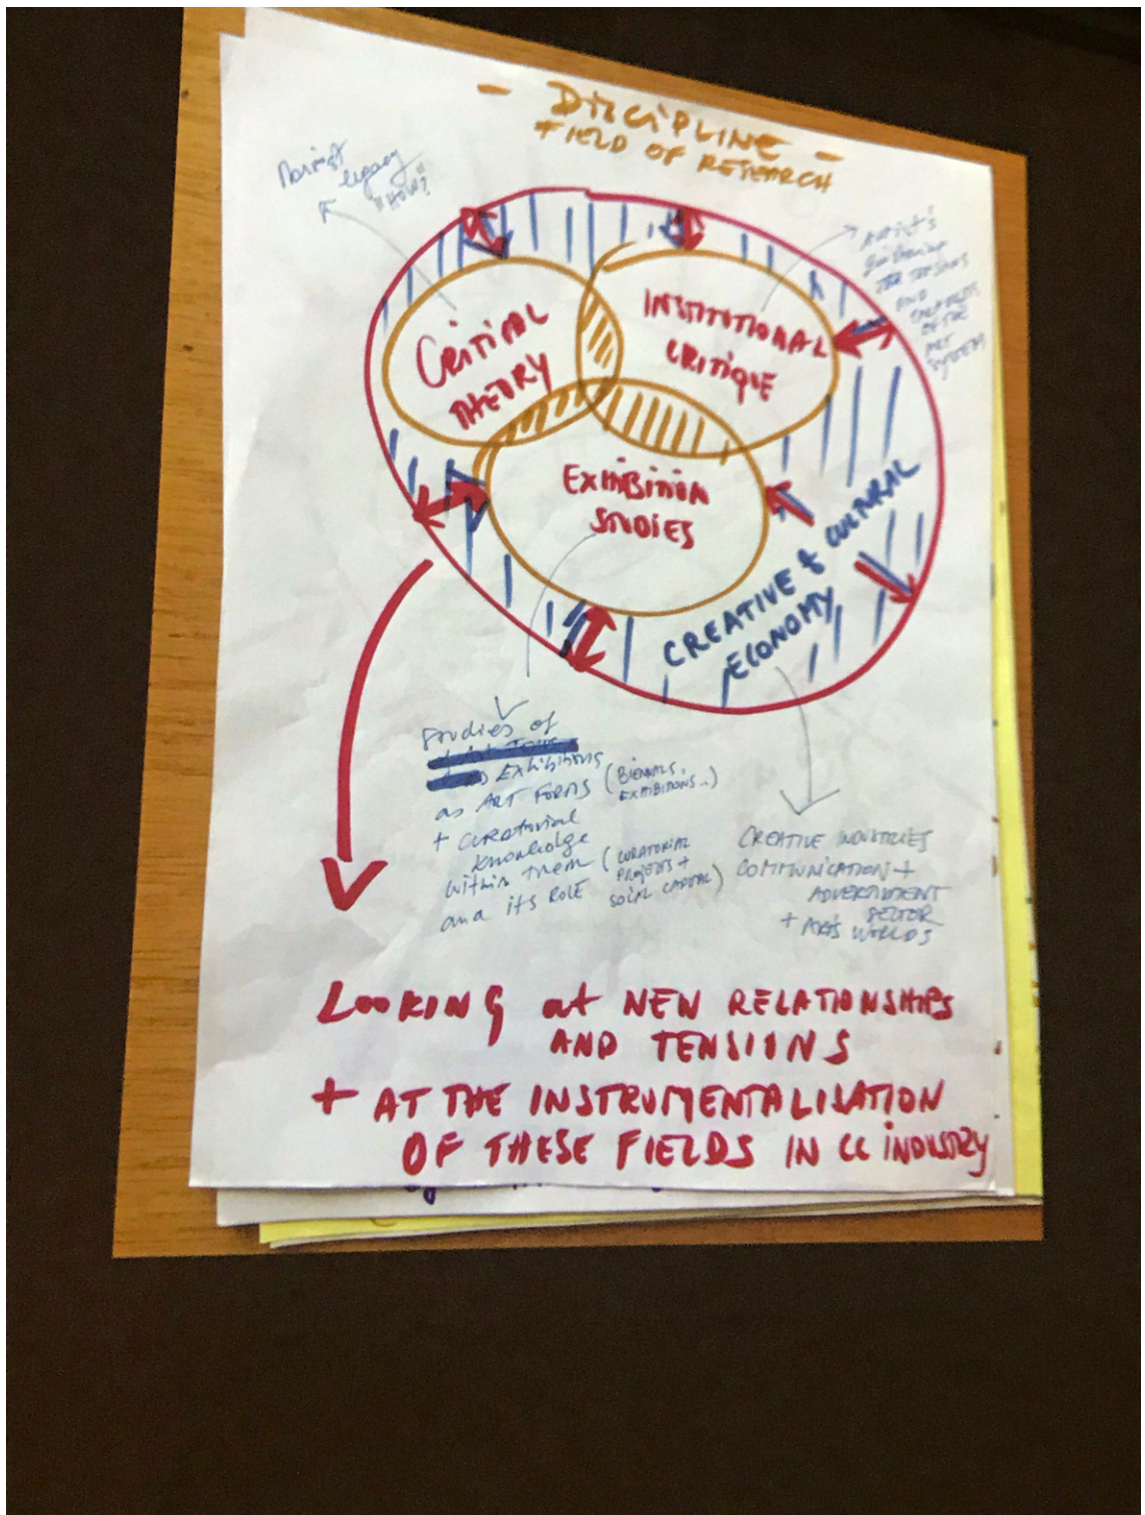 - DISCIPLINE -
FIELD OF RESEARCH
legacy
"HOW?"
ARTISTS
AND
OF THE
ART
SYSTEM
CRITICAL
THEORY
INSTITUTIONAL
CRITIQUE
EXHIBITION
STUDIES
CREATIVE & CULTURAL
ECONOMY
Studies of
EXHIBITIONS
as ART FORMS (BIENNALS,
EXHIBITIONS..)
+ curatorial
knowledge
within them (CURATORIAL
PROJECTS +
and its ROLE SOCIAL CAPITAL)
CREATIVE INDUSTRIES
COMMUNICATION +
ADVERTISMENT
SECTOR
+ ART'S WORLDS
LOOKING at NEW RELATIONSHIPS
AND TENSIONS
+ AT THE INSTRUMENTALISATION
OF THESE FIELDS IN CC INDUSTRY